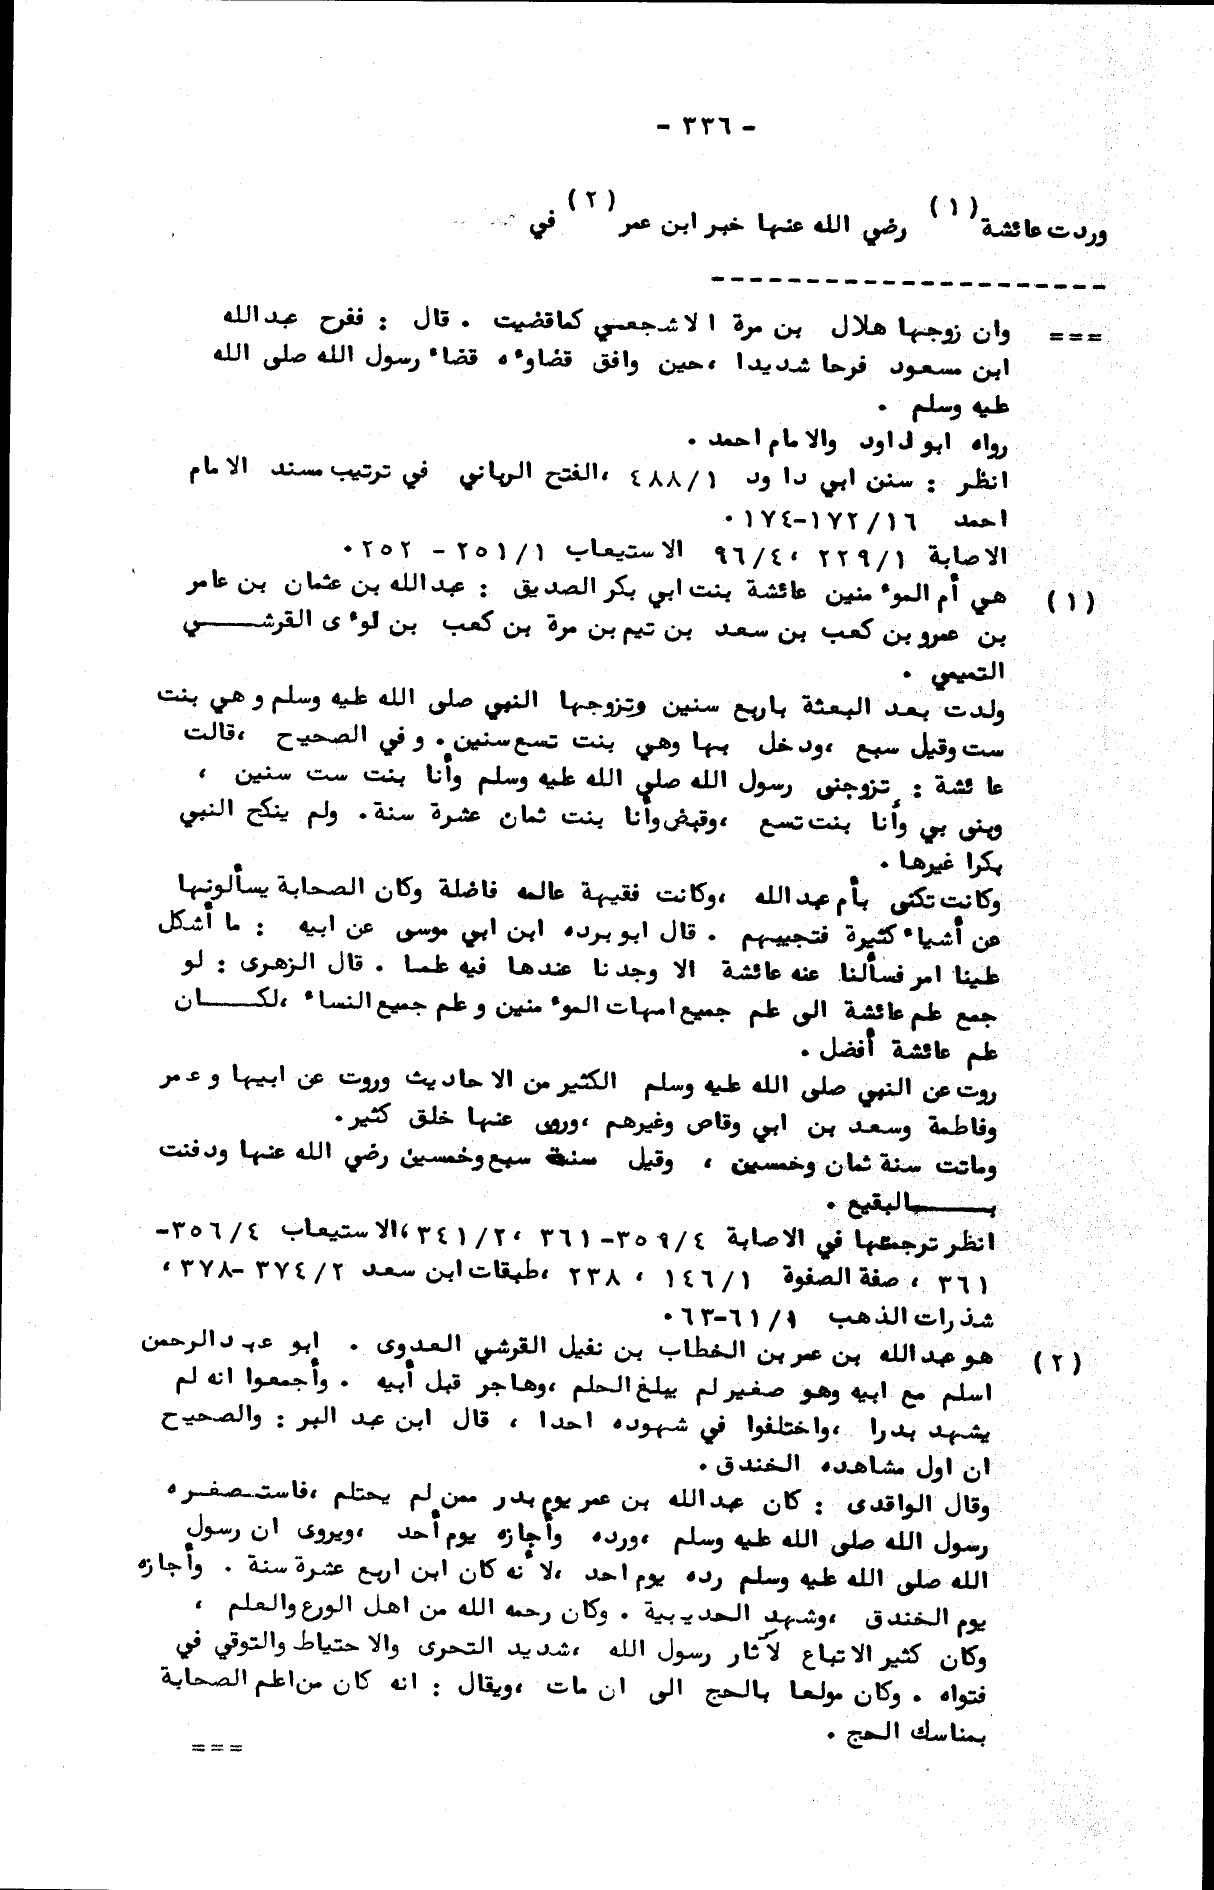 - ٣٣٦ -
وردت عائشة (١) رضي الله عنها خبر ابن عمر (٢) في
=== وان زوجها هلال بن مرة الاشجعي كماقضيت . قال : ففرح عبدالله
ابن مسعود فرحا شديدا ،حين وافق قضاوءه قضاء رسول الله صلى الله
عليه وسلم .
رواه ابو داود والامام احمد .
انظر : سنن ابي داود ٤٨٨/١ ،الفتح الرباني في ترتيب مسند الامام
احمد ١٧٢/١٦-١٧٤ .
الاصابة ٢٢٩/١ ، ٩٦/٤ الاستيعاب ٢٥١/١ - ٢٥٢ .
(١) هي أم الموء منين عائشة بنت ابي بكر الصديق : عبدالله بن عثمان بن عامر
بن عمرو بن كعب بن سعد بن تيم بن مرة بن كعب بن لوءى القرشـــي
التميمي .
ولدت بعد البعثة باربع سنين وتزوجها النبي صلى الله عليه وسلم وهي بنت
ست وقيل سبع ،ودخل بها وهي بنت تسع سنين . وفي الصحيح ،قالت
عائشة : تزوجنى رسول الله صلى الله عليه وسلم وأنا بنت ست سنين ،
وبنى بي وأنا بنت تسع ،وقبض وأنا بنت ثمان عشرة سنة . ولم ينكح النبي
بكرا غيرها .
وكانت تكنى بأم عبدالله ،وكانت فقيهة عالمه فاضلة وكان الصحابة يسألونها
عن أشياء كثيرة فتجيبهم . قال ابو برده ابن ابي موسى عن ابيه : ما أشكل
علينا امر فسألنا عنه عائشة الا وجدنا عندها فيه علما . قال الزهرى : لو
جمع علم عائشة الى علم جميع امهات الموء منين وعلم جميع النساء ،لكـــان
علم عائشة أفضل .
روت عن النبي صلى الله عليه وسلم الكثير من الاحاديث وروت عن ابيها وعمر
وفاطمة وسعد بن ابي وقاص وغيرهم ،وروى عنها خلق كثير .
وماتت سنة ثمان وخمسين ، وقيل سنة سبع وخمسين رضي الله عنها ودفنت
بـــالبقيع .
انظر ترجمتها في الاصابة ٣٥٩/٤-٣٦١ ،٣٤١/٢ ،الاستيعاب ٣٥٦/٤-
٣٦١ ، صفة الصفوة ١٤٦/١ ، ٢٣٨ ،طبقات ابن سعد ٣٧٤/٢ -٣٧٨ ،
شذرات الذهب ٦١/١-٦٣ .
(٢) هو عبدالله بن عمر بن الخطاب بن نفيل القرشي العدوى . ابو عبد الرحمن
اسلم مع ابيه وهو صغير لم يبلغ الحلم ،وهاجر قبل أبيه . وأجمعوا انه لم
يشهد بدرا ،واختلفوا في شهوده احدا ، قال ابن عبد البر : والصحيح
ان اول مشاهده الخندق .
وقال الواقدى : كان عبدالله بن عمر يوم بدر ممن لم يحتلم ،فاستـصغـره
رسول الله صلى الله عليه وسلم ،ورده وأجازه يوم أحد ،ويروى ان رسول
الله صلى الله عليه وسلم رده يوم احد ،لأنه كان ابن اربع عشرة سنة . وأجازه
يوم الخندق ،وشهد الحديبية . وكان رحمه الله من اهل الورع والعلم ،
وكان كثير الاتباع لآثار رسول الله ،شديد التحرى والاحتياط والتوقي في
فتواه . وكان مولعا بالحج الى ان مات ،ويقال : انه كان من اعلم الصحابة
بمناسك الحج .
===